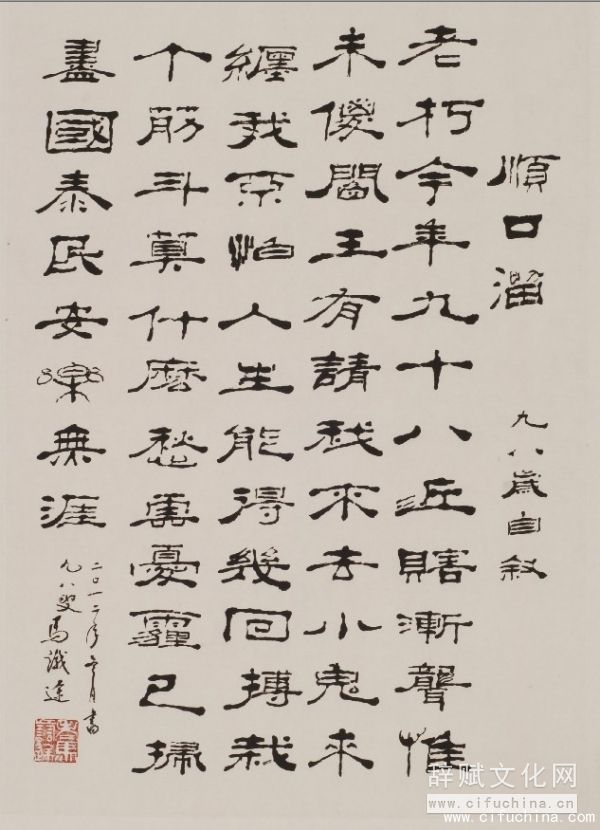 順口溜 九八歲自敘
老朽今年九十八近瞎漸聾惟
未傻閻王有請我不去小鬼來
纏我不怕人生能得幾回搏栽
个筋斗算什麼愁雲憂霾已掃
盡國泰民安樂無涯
二〇一二年月書
九八叟馬識途
辞赋文化网
www.cifuchina.cn
www.cifuchina.com